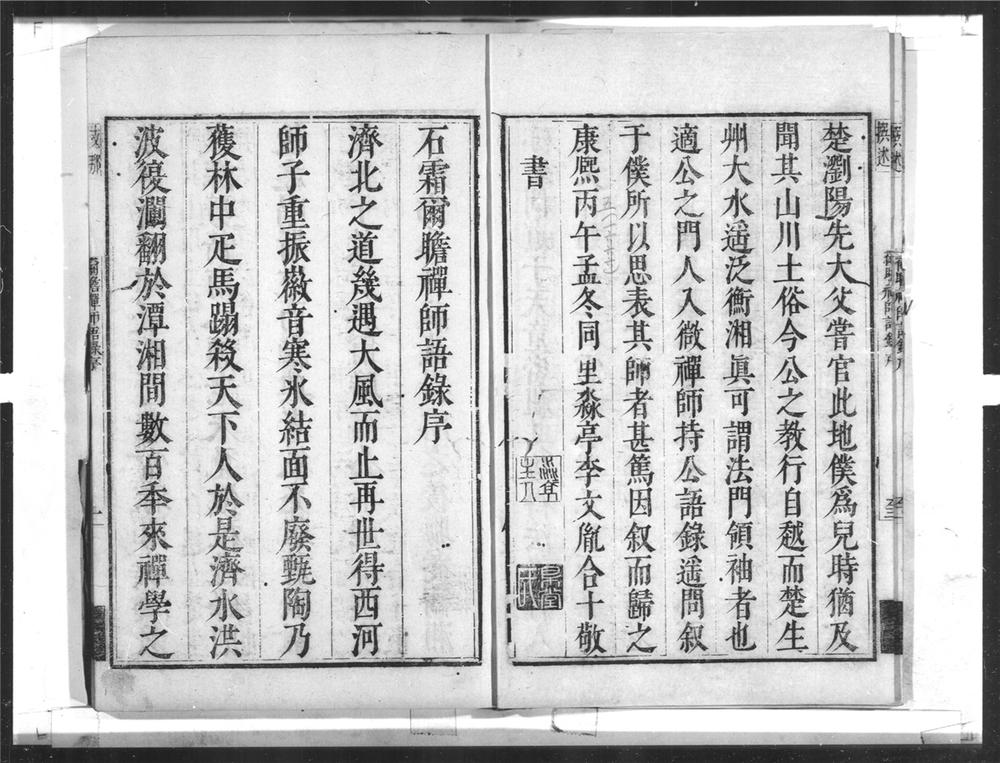 楚瀏陽先大父嘗官此地僕為兒時猶及
聞其山川土俗今公之教行自越而楚生
州大水遥泛衡湘眞可謂法門領袖者也
適公之門人入微禪師持公語錄遥問叙
于僕所以思表其師者甚篤因叙而歸之
康熈丙午孟冬同里淼亭李文胤合十敬
書
石霜爾瞻禪師語錄序
濟北之道幾遇大風而止再世得西河
師子重振徽音寒氷結面不廢甄陶乃
獲林中疋馬蹋殺天下人於是濟水洪
波復瀾翻於潭湘間數百秊來禪學之
支那
爾瞻禪師語錄序
一
撰述